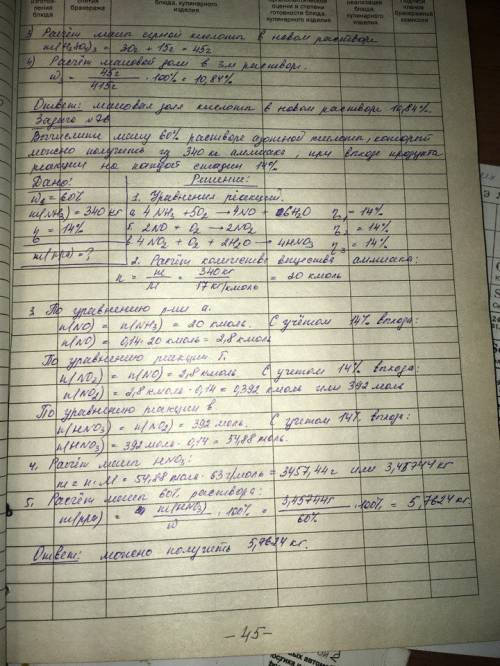 изготов-
ления
блюда
снятия
бракеража
блюда, кулинарного
изделия
оценки и степени
готовности блюда,
кулинарного изделия
реализации
блюда,
кулинарного
изделия
Подписи
членов
бракеражной
комиссии
3) Расчёт массы серной кислоты в новом растворе
m(H2SO4)3 = 30г + 15г = 45г
4) Расчёт массовой доли в 3м растворе.
ω = 45г / 415г · 100% = 10,84%
Ответ: массовая доля кислоты в новом растворе 10,84%.
Задача №
Вычислить массу 60% раствора азотной кислоты, который
можно получить из 340 кг аммиака, при выходе продукта
реакции на каждой стадии 14%
Дано:
Решение:
ω = 60%
1. Уравнения реакций.
m(NH3) = 340 кг
а 4NH3 + 5O2 → 4NO + 6H2O η1 = 14%
η = 14%
б 2NO + O2 → 2NO2 η2 = 14%
в 4NO2 + O2 + 2H2O → 4HNO3 η3 = 14%
m(рра) = ?
2. Расчёт количества вещества аммиака:
n = m / M = 340 кг / 17 кг/кмоль = 20 кмоль
3. По уравнению р-ии а.
n(NO) = n(NH3) = 20 кмоль. С учётом 14% выхода:
n(NO) = 0,14 · 20 кмоль = 2,8 кмоль
По уравнению реакции б.
n(NO2) = n(NO) = 2,8 кмоль. С учетом 14% выхода:
n(NO2) = 2,8 кмоль · 0,14 = 0,392 кмоль или 392 моль
По уравнению реакции в
n(HNO3) = n(NO2) = 392 моль. С учетом 14% выхода:
n(HNO3) = 392 моль · 0,14 = 54,88 моль.
4. Расчёт массы HNO3:
m = n · M = 54,88 моль · 63 г/моль = 3457,44 г или 3,45744 кг
5. Расчёт массы 60% раствора:
m(рра) = m(HNO3) / ω · 100% = 3,45744кг / 60% · 100% = 5,7624 кг
Ответ: можно получить 5,7624 кг.
- 45 -